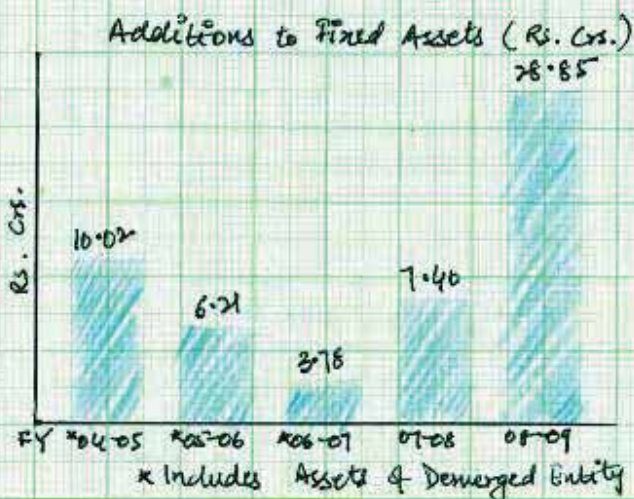 Additions to Fixed Assets (Rs. Crs.)
28.85
10.02
7.40
6.21
3.78
Rs. Crs.
FY *04-05 *05-06 *06-07 07-08 08-09
* Includes Assets of Demerged Entity